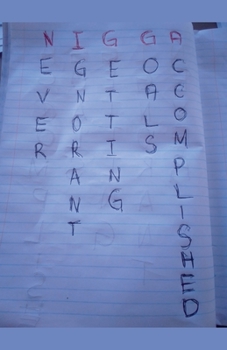 NEVER
IGNORANT
GETTING
GOALS
ACCOMPLISHED